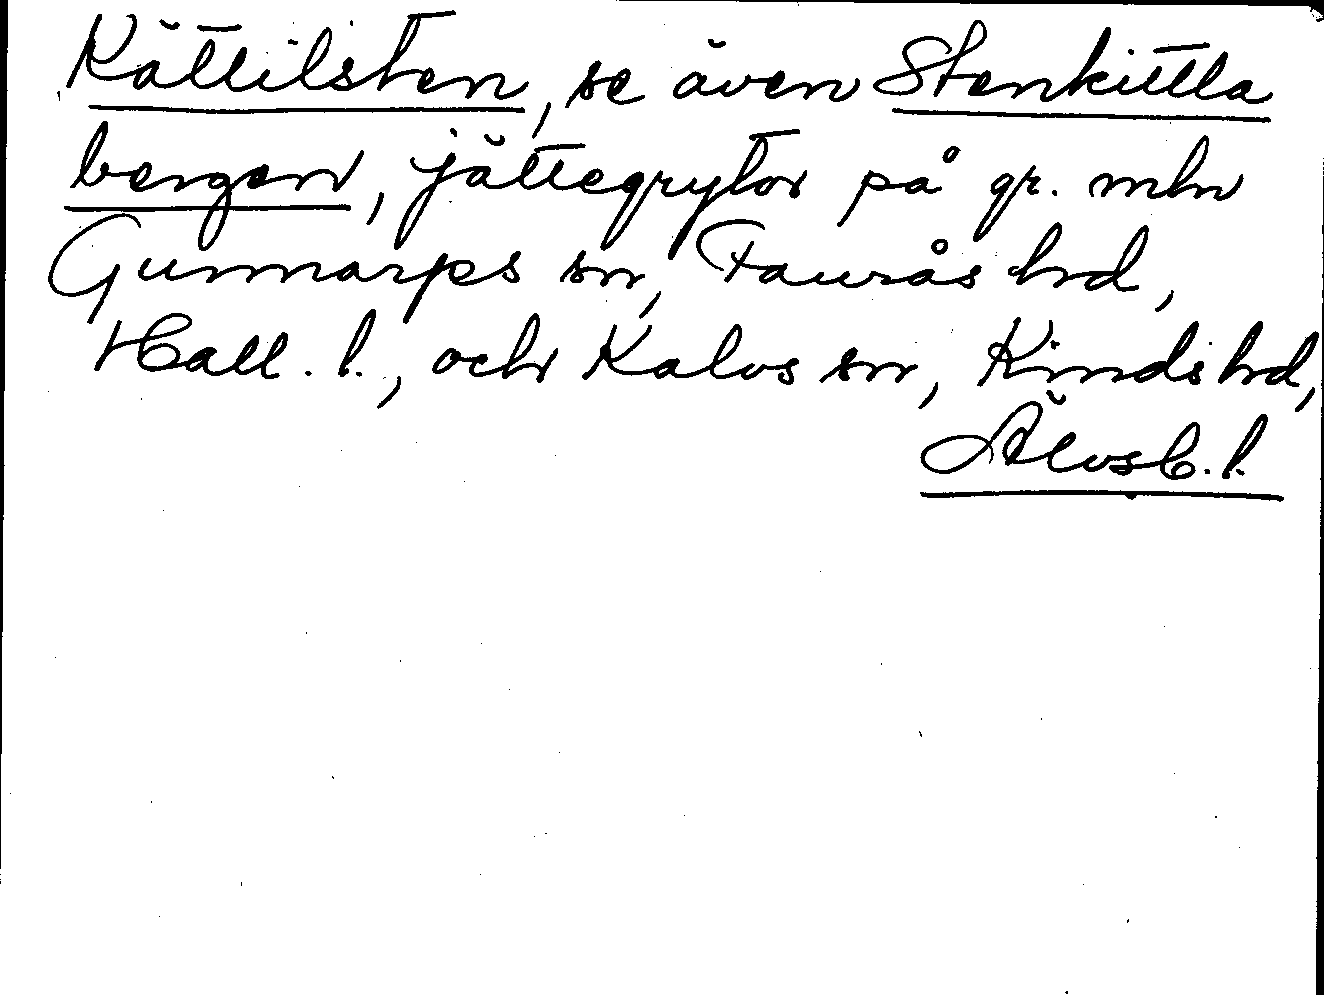 Kättilsten, se även Stenkittla
bergen, jättegrytor på gr. mln
Gunnarps sn, Faurås hrd,
Hall. l., och Kalvs sn, Kinds hrd,
Älvsb. l.